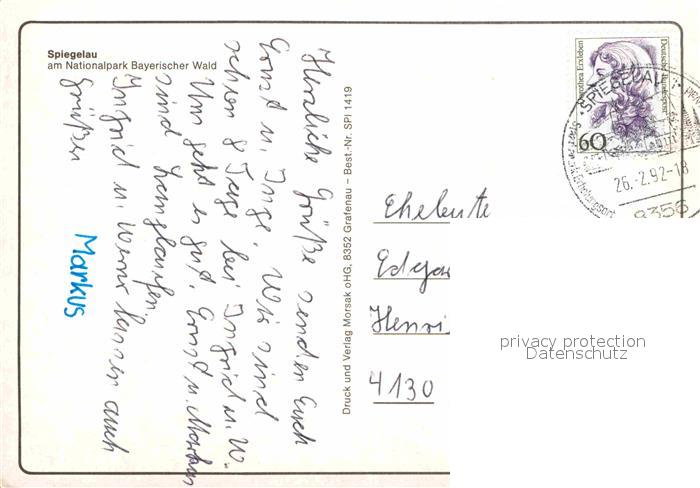 Spiegelau
am Nationalpark Bayerischer Wald
Herzliche Grüße senden Euch
Ernst u. Inge. Wir sind
schon 8 Tage bei Ingrid u. W.
Uns geht es gut. Ernst u. Markus
sind Langlaufen.
Ingrid u. Werner lassen auch
grüßen
Markus
Druck und Verlag Morsak oHG, 8352 Grafenau – Best.-Nr. SPI 1419
Dorothea Erxleben
Deutsche Bundespost
60
SPIEGELAU
26.-2.92-18
8356
Eheleute
Edgar
Henri
4130
privacy protection
Datenschutz